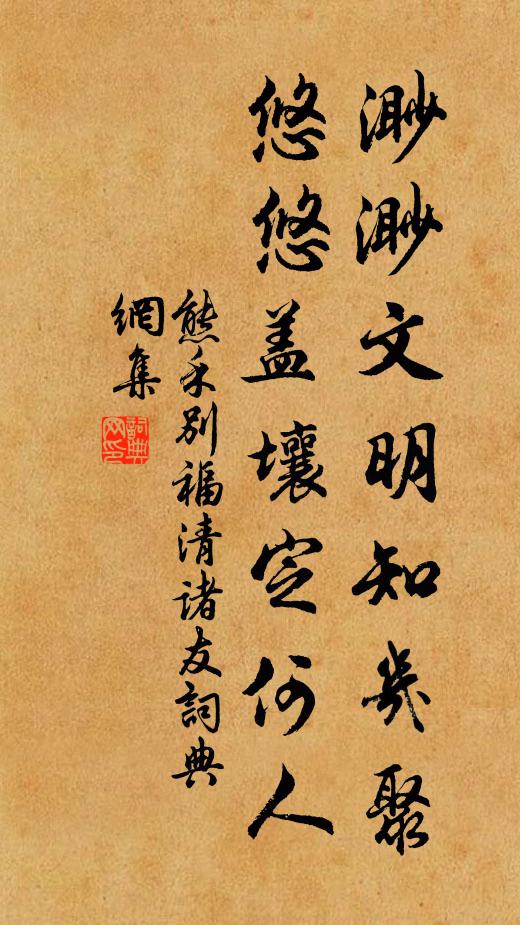 渺渺文明知幾聚
悠悠盖壤定何人
熊禾别福清诸友詞典
網集
詞典
网印